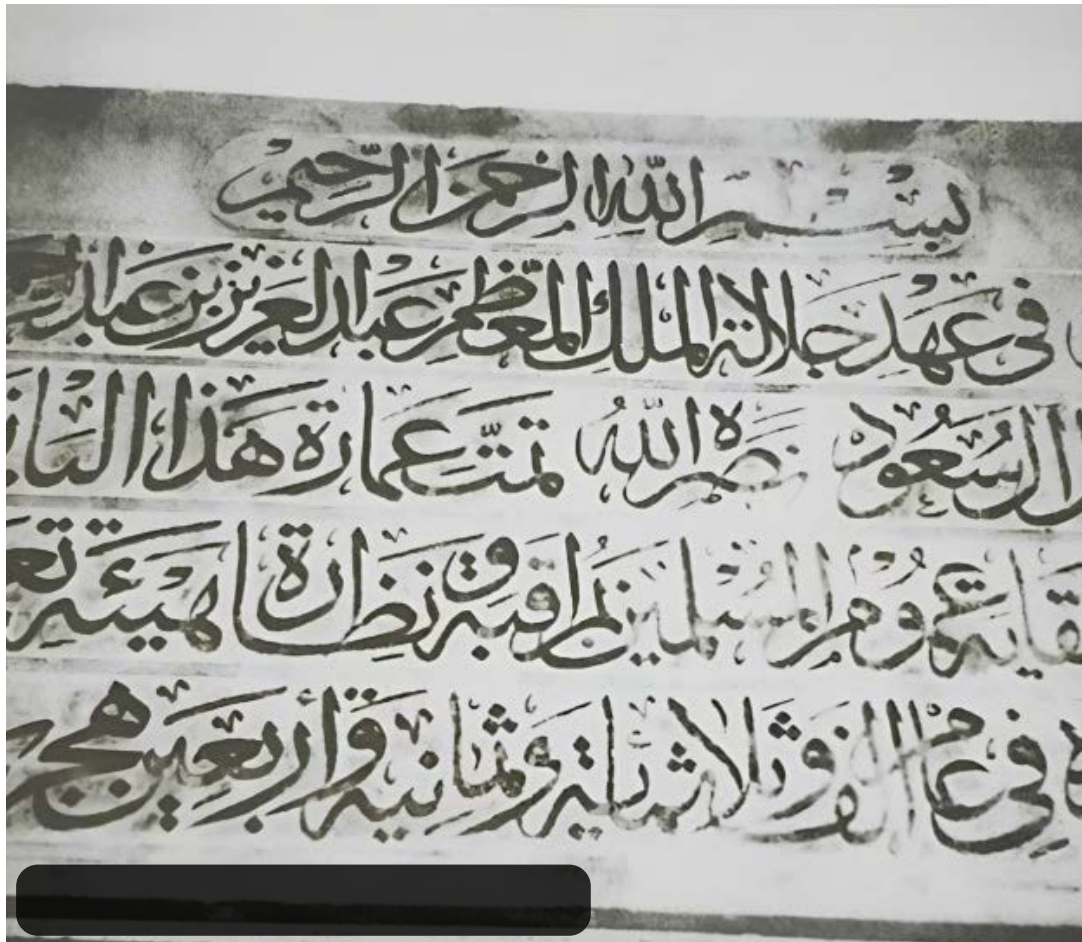 بسم الله الرحمن الرحيم
في عهد جلالة الملك المعظم عبد العزيز بن عبد
السعود نصره الله تمت عمارة هذا
عموم المسلمين بمراقبة ونظارة هيئة
في عام ألف وثلاثمائة وثمانية وأربعين